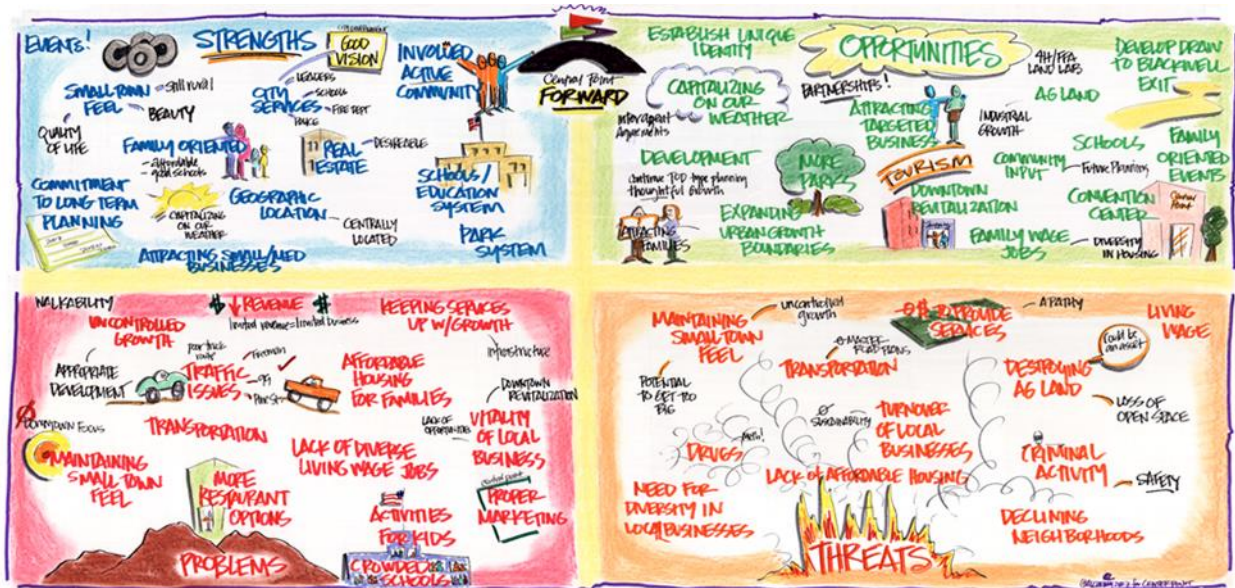 EVENTS!
STRENGTHS
GOOD
VISION
INVOLVED
ACTIVE
COMMUNITY
SMALL TOWN
FEEL
still rural
BEAUTY
LEADERS
SCHOOLS
FIRE DEPT
PARKS
CITY
SERVICES
QUALITY
OF LIFE
FAMILY ORIENTED
- affordable
- good schools
REAL
ESTATE
DESIREABLE
SCHOOLS /
EDUCATION
SYSTEM
COMMITMENT
TO LONG TERM
PLANNING
CAPITALIZING
ON OUR
WEATHER
GEOGRAPHIC
LOCATION
CENTRALLY
LOCATED
PARK
SYSTEM
ATTRACTING SMALL/MED
BUSINESSES
Central Point
FORWARD
ESTABLISH UNIQUE
IDENTITY
OPPORTUNITIES
4H/FFA
LAND LAB
DEVELOP DRAW
TO BLACKWELL
EXIT
CAPITALIZING
ON OUR
WEATHER
PARTNERSHIPS!
AG LAND
Agreements
ATTRACTING
TARGETED
BUSINESS
INDUSTRIAL
GROWTH
SCHOOLS
FAMILY
ORIENTED
EVENTS
DEVELOPMENT
continue TOD type planning
thoughtful Growth
MORE
PARKS
TOURISM
COMMUNITY
INPUT
Future Planning
DOWNTOWN
REVITALIZATION
CONVENTION
CENTER
Central
Point
ATTRACTING
FAMILIES
EXPANDING
URBAN GROWTH
BOUNDARIES
FAMILY WAGE
JOBS
DIVERSITY
IN HOUSING
WALKABILITY
$ ↓ REVENUE $
limited revenue = limited business
KEEPING SERVICES
UP W/GROWTH
infrastructure
UNCONTROLLED
GROWTH
APPROPRIATE
DEVELOPMENT
poor truck
route
TRAFFIC
ISSUES
Freeman
99
Pine St.
AFFORDABLE
HOUSING
FOR FAMILIES
DOWNTOWN
REVITALIZATION
DOWNTOWN FOCUS
TRANSPORTATION
LACK OF
OPPORTUNITIES
VITALITY
OF LOCAL
BUSINESS
MAINTAINING
SMALL TOWN
FEEL
LACK OF DIVERSE
LIVING WAGE JOBS
MORE
RESTAURANT
OPTIONS
Central Point
PROPER
MARKETING
ACTIVITIES
FOR KIDS
PROBLEMS
CROWDED
SCHOOLS
MAINTAINING
SMALL TOWN
FEEL
uncontrolled
growth
TO PROVIDE
SERVICES
APATHY
LIVING
WAGE
MASTER
ROAD PLANS
TRANSPORTATION
Could be
an asset
DESTROYING
AG LAND
POTENTIAL
TO GET TOO
BIG
LOSS OF
OPEN SPACE
SUSTAINABILITY
TURNOVER
OF LOCAL
BUSINESSES
Meth!
DRUGS
CRIMINAL
ACTIVITY
SAFETY
LACK OF AFFORDABLE HOUSING
NEED FOR
DIVERSITY IN
LOCAL BUSINESSES
DECLINING
NEIGHBORHOODS
THREATS